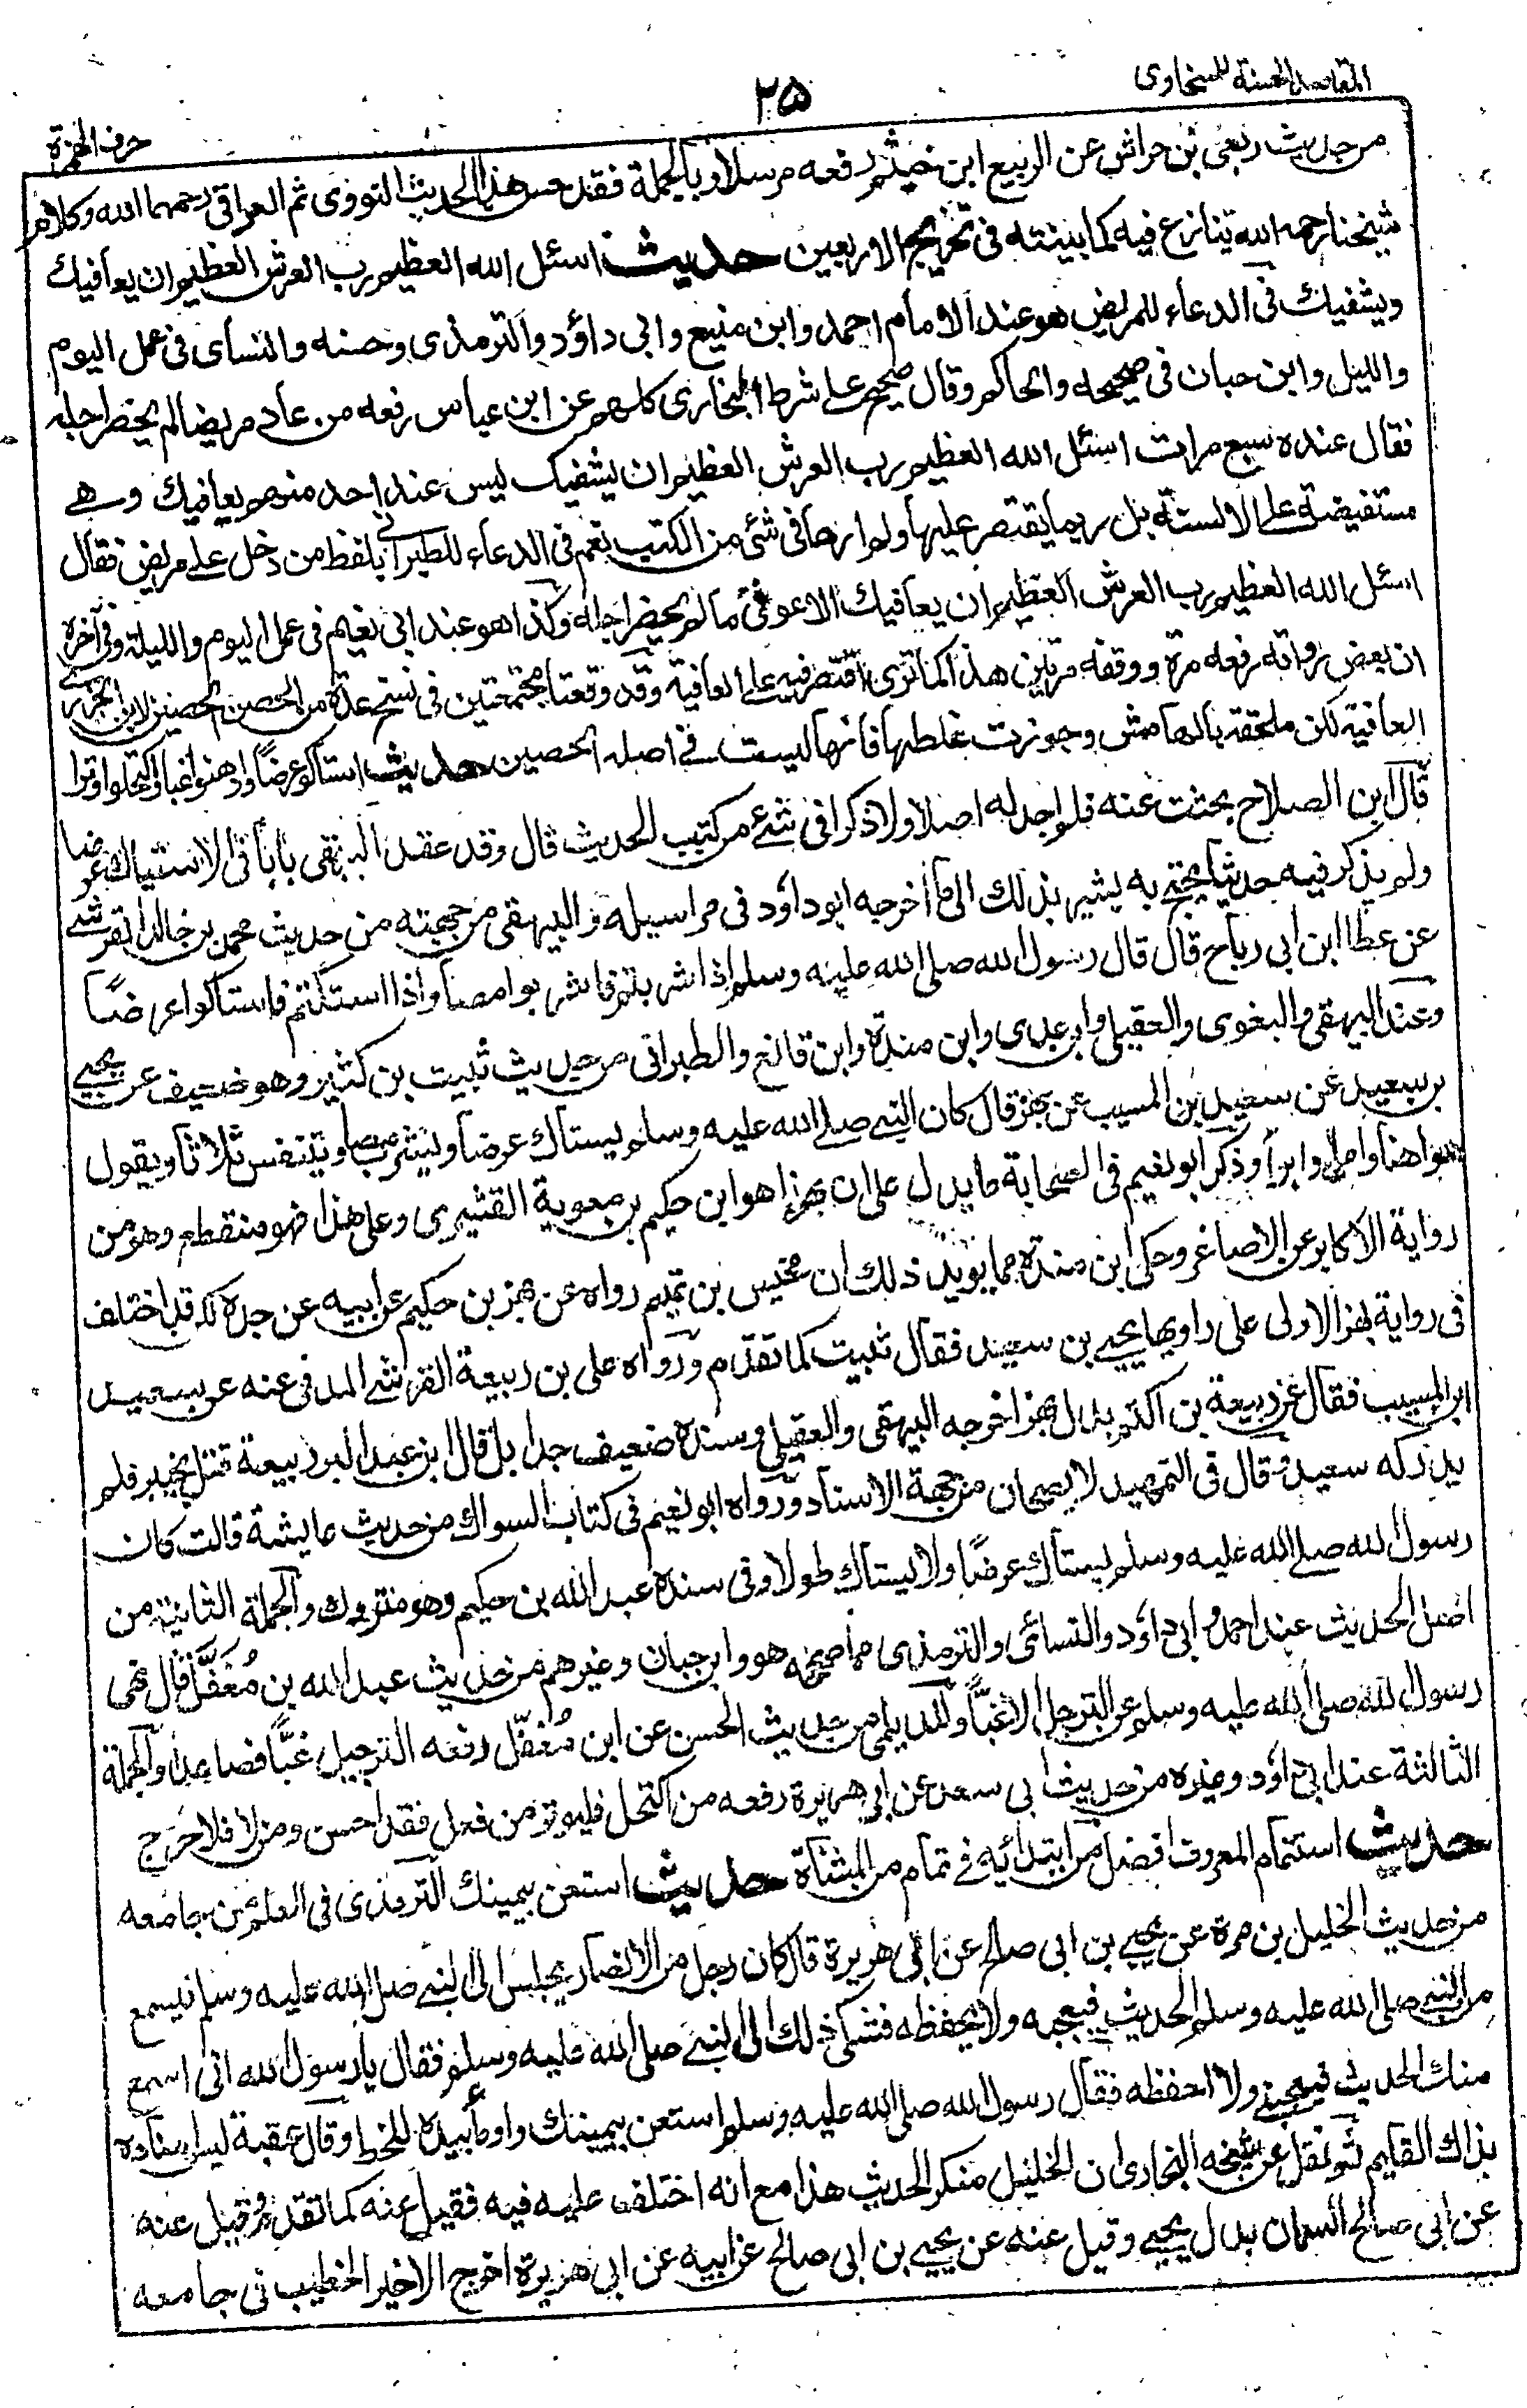 المقاصد الحسنة للسخاوى
٢٥
حرف الهمزة
من حديث ربعى بن حراش عن الربيع ابن خيثم رفعه مرسلا وبالجملة فقد حسن هذا الحديث النووى ثم العراقى رحمهما الله وكلام
شيخنا رحمه الله ينازع فيه كما بينته فى تخريج الاربعين حديث اسئل الله العظيم رب العرش العظيم ان يعافيك
ويشفيك فى الدعاء للمريض هو عند الامام احمد وابن منيع وابى داؤد والترمذى وحسنه والنسأى فى عمل اليوم
والليل وابن حبان فى صحيحه والحاكم وقال صحيح على شرط البخارى كلهم عن ابن عباس رفعه من عاد مريضا لم يحضر اجله
فقال عنده سبع مرات اسئل الله العظيم رب العرش العظيم ان يشفيك ليس عند احد منهم يعافيك وهى
مستفيضة على الالسنة بل ربما يقتصر عليها ولم ارها فى شئى من الكتب نعم فى الدعاء للطبرانى بلفظ من دخل على مريض فقال
اسئل الله العظيم رب العرش العظيم ان يعافيك الا عوفى ما لم يحضر اجله وكذا هو عند ابى نعيم فى عمل اليوم والليلة وفى آخره
ان بعض رواته رفعه مرة ووقفه مرتين هذا كما ترى اقتصر فيه على العافية وقد وقعتا مجتمعتين فى نسخ عدة من الحصن الحصين لابن الجزرى
العافية لكن ملحقة بالهامش وجوزت غلطها فانها ليست فى اصله الحصين حديث استاكوا عرضًا وادهنوا غبا واكتحلوا وترا
قال ابن الصلاح بحثت عنه فلم اجد له اصلا ولا ذكرا فى شئ من كتب الحديث قال وقد عقد البيهقى بابا فى الاستياك عرضا
ولم يذكر فيه حديثا يحتج به يشير بذلك الى ما أخرجه ابو داود فى مراسيله والبيهقى من جهته من حديث محمد بن خالد القرشى
عن عطا ابن ابى رباح قال قال رسول الله صلى الله عليه وسلم اذا شربتم فاشربوا مصا واذا استكتم فاستاكوا عرضًا
وعند البيهقى والبغوى والعقيلى وابن عدى وابن مندة وابن قانع والطبرانى من حديث ثبيت بن كثير وهو ضعيف عن يحيى
بن سعيد عن سعيد بن المسيب عن بهز قال كان النبى صلى الله عليه وسلم يستاك عرضا ويشرب مصا ويتنفس ثلاثا ويقول
هو اهنأ وامرأ وابرأ وذكر ابو نعيم فى الصحابة ما يدل على ان بهزا هو ابن حكيم بن معوية القشيرى وعلى هذا فهو منقطع وهو من
رواية الاكابر عن الاصاغر وحكى ابن مندة مما يويد ذلك ان مخيس بن تميم رواه عن بهز بن حكيم عن ابيه عن جده قد اختلف
فى رواية بهز الاولى على راويها يحيى بن سعيد فقال ثبيت كما تقدم ورواه على بن ربيعة القرشى المدنى عنه عن سعيد
ابن المسيب فقال عن ربيعة بن اكثم بدل بهز اخرجه البيهقى والعقيلى وسنده ضعيف جدا بل قال ابن عبد البر ربيعة قتل بخيبر فلم
يدركه سعيد وقال فى التمهيد لا يصحان من جهة الاسناد ورواه ابو نعيم فى كتاب السواك من حديث عايشة قالت كان
رسول الله صلى الله عليه وسلم يستاك عرضًا ولا يستاك طولا وفى سنده عبد الله بن حكيم وهو متروك والجملة الثانية من
اصل الحديث عند احمد وابى داؤد والنسائى والترمذى مما صححه هو وابن حبان وغيرهم من حديث عبد الله بن مُغَفَّل قال نهى
رسول الله صلى الله عليه وسلم عن الترجل الا غبًّا وللديلمى من حديث الحسن عن ابن مُغفَّل رفعه الترجيل غبًّا فصاعدا والجملة
الثالثة عند ابى داؤد وغيره من حديث ابى سعد عن ابى هريرة رفعه من اكتحل فليوتر من فعل فقد احسن ومن لا فلا حرج
حديث استتمام المعروف افضل من ابتدائه فى تمام من المثناة حديث استعن بيمينك الترمذى فى العلم من جامعه
من حديث الخليل بن مرة عن يحيى بن ابى صالح عن ابى هريرة قال كان رجل من الانصار يجلس الى النبى صلى الله عليه وسلم فيسمع
من النبى صلى الله عليه وسلم الحديث فيعجبه ولا يحفظه فشكى ذلك الى النبى صلى الله عليه وسلم فقال يا رسول الله انى اسمع
منك الحديث فيعجبنى ولا احفظه فقال رسول الله صلى الله عليه وسلم استعن بيمينك واومأ بيده للخط وقال عقبة ليس اسناده
بذاك القايم ثم نقل عن شيخه البخارى ان الخليل منكر الحديث هذا مع انه اختلف عليه فيه فقيل عنه كما تقدم وقيل عنه
عن ابى صالح السمان بدل يحيى وقيل عنه عن يحيى بن ابى صالح عن ابيه عن ابى هريرة اخرج الاخير الخطيب فى جامعه